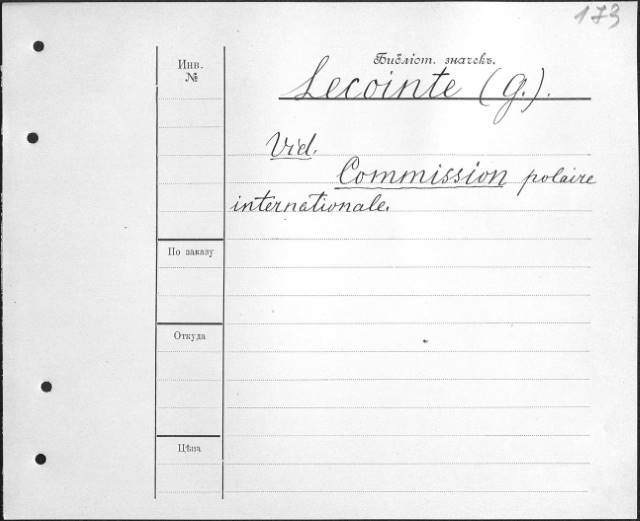 173
Инв.
№
Библіот. значекъ.
Lecointe (G.).
Vid.
Commission polaire
internationale.
По заказу
Откуда
Цѣна